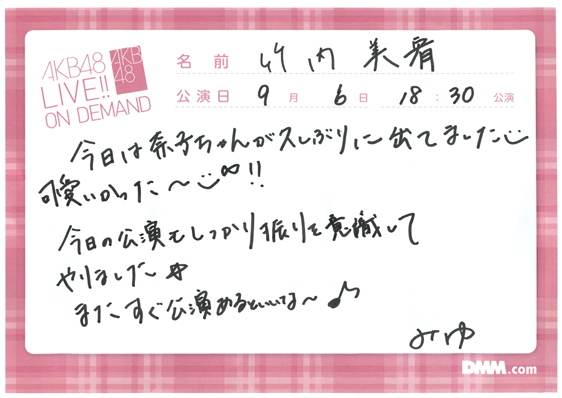 AKB48
LIVE!!
ON DEMAND
AKB
48
名前 竹内美宥
公演日 9月6日 18:30 公演
今日は奈子ちゃんが久しぶりに出てました
可愛いかった〜!!
今日の公演もしっかり振りを意識して
やりました☆
またすぐ公演あるといいな〜♪
みゆ
DMM.com